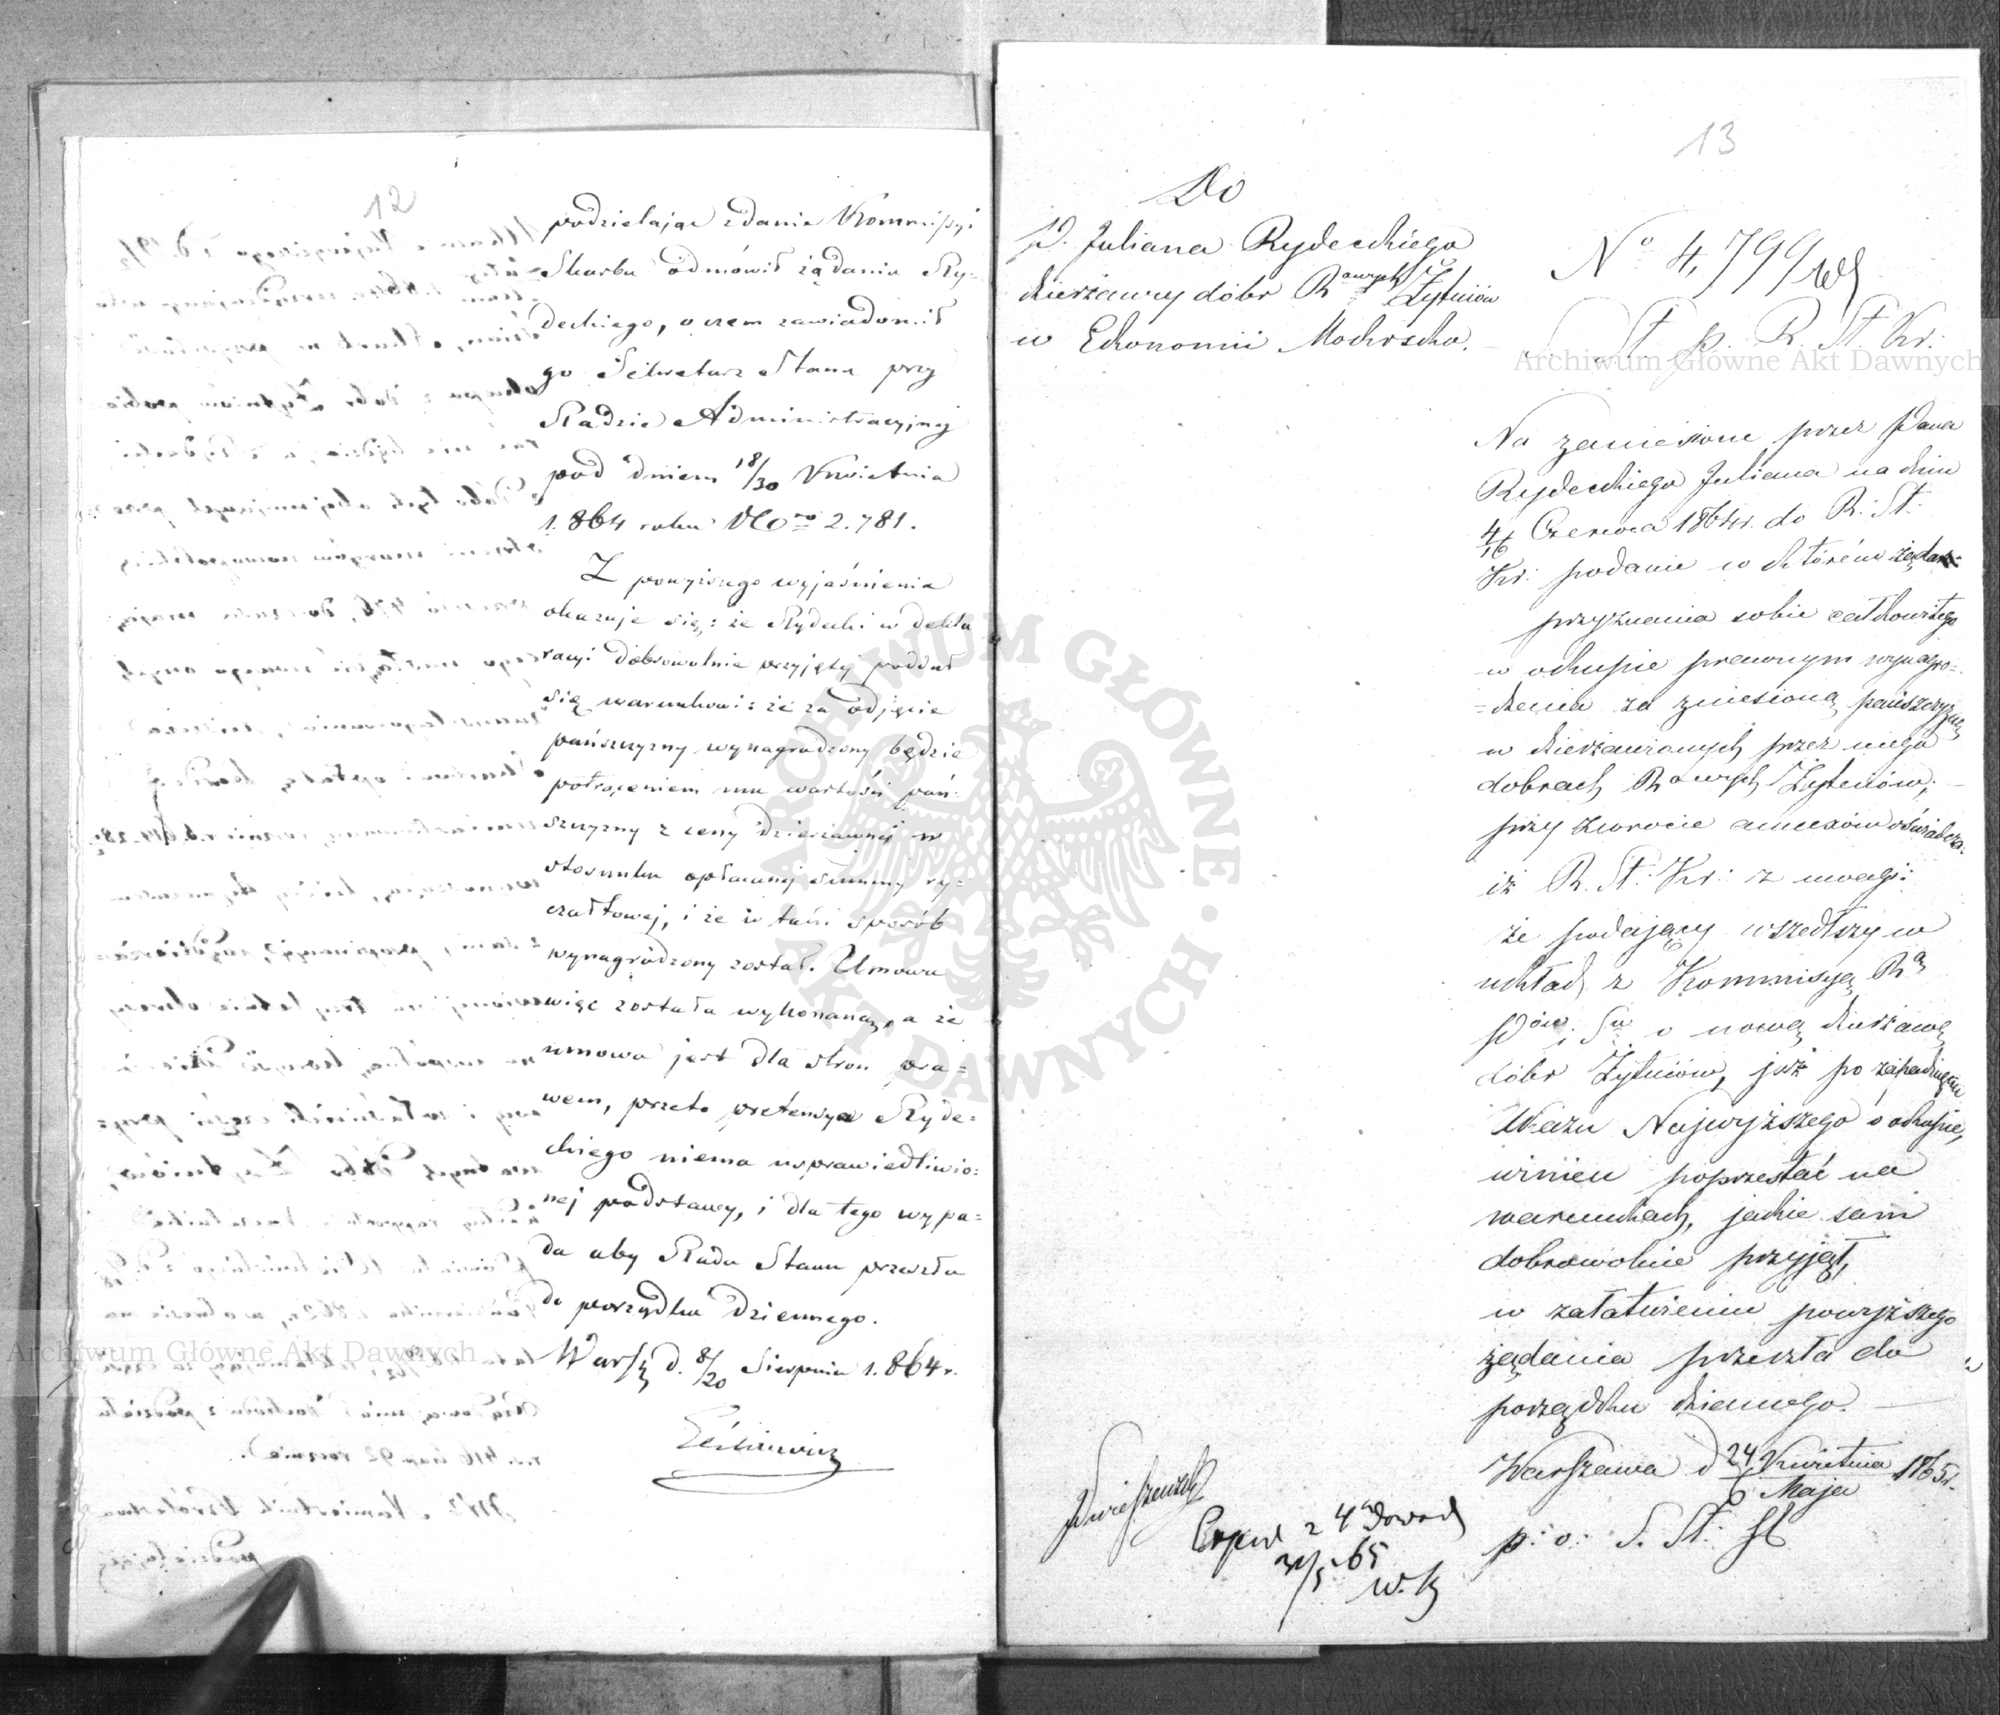 12
podzielając zdanie Kommissyi
Skarbu odmówił żądaniu Ry-
deckiego, o czem zawiadomił
go Sekretarz Stanu przy
Radzie Administracyjnej
pod dniem 18/30 Kwietnia
1.864 roku No 2.781.
Z powyższego wyjaśnienia
okazuje się: że Rydecki w dekla
racyi dobrowolnie przyjętej poddał
się warunkowi: że za odjęcie
pańszczyzny wynagrodzony będzie
potrąceniem mu wartości pań-
szczyzny z ceny dzierżawnej w
stosunku opłacanej summy ry-
czałtowej, i że w taki sposób
wynagrodzony został. Umowa
więc została wykonaną, a że
umowa jest dla stron pra-
wem, przeto pretensya Ryde-
ckiego niema usprawiedliwio-
nej podstawy, i dla tego wypa-
da aby Rada Stanu przeszła
do porządku dziennego.
Warsz d. 8/20 Sierpnia 1.864 r.
13
Do
P. Juliana Rydeckiego
dzierżawcy dóbr Rządowych Żytniów
w Ekonomii Mokrsko.
No 4,799
S. St. p. R. St. Kr:
Na zaniesione przez Pana
Rydeckiego Juliana na dniu
4/16 Czerwca 1864 r. do R: St:
Kr: podanie w którém żąda
przyznania sobie całkowitego
w odkupie prawnym wynagro=
=dzenia za zniesioną pańszczyznę
w dzierżawionych przez niego
dobrach Rządowych Żytniów;
przy zwrocie annexów oświadcza:
iż R. St: Kr: z uwagi:
że podający wszedłszy w
układ z Kommissyą Rą
Pów. Su o nową dzierżawę
dóbr Żytniów, już po zapadnięciu
Ukazu Najwyższego o okupie,
winien poprzestać na
warunkach, jakie sam
dobrowolnie przyjął,
w załatwieniu powyższego
żądania przeszła do
porządku dziennego.
Warszawa d 24 Kwietnia / 6 Maja 1865 r.
p: o: S. St:
Exped z 4 dowod
31/5 65
Archiwum Główne Akt Dawnych
Archiwum Główne Akt Dawnych
ARCHIWUM GŁÓWNE · AKT DAWNYCH ·